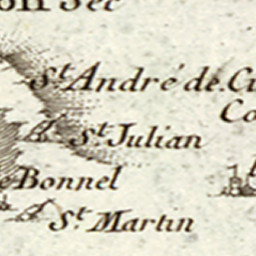 Sec
St. André de
Co
St. Julian
Bonnel
St. Martin